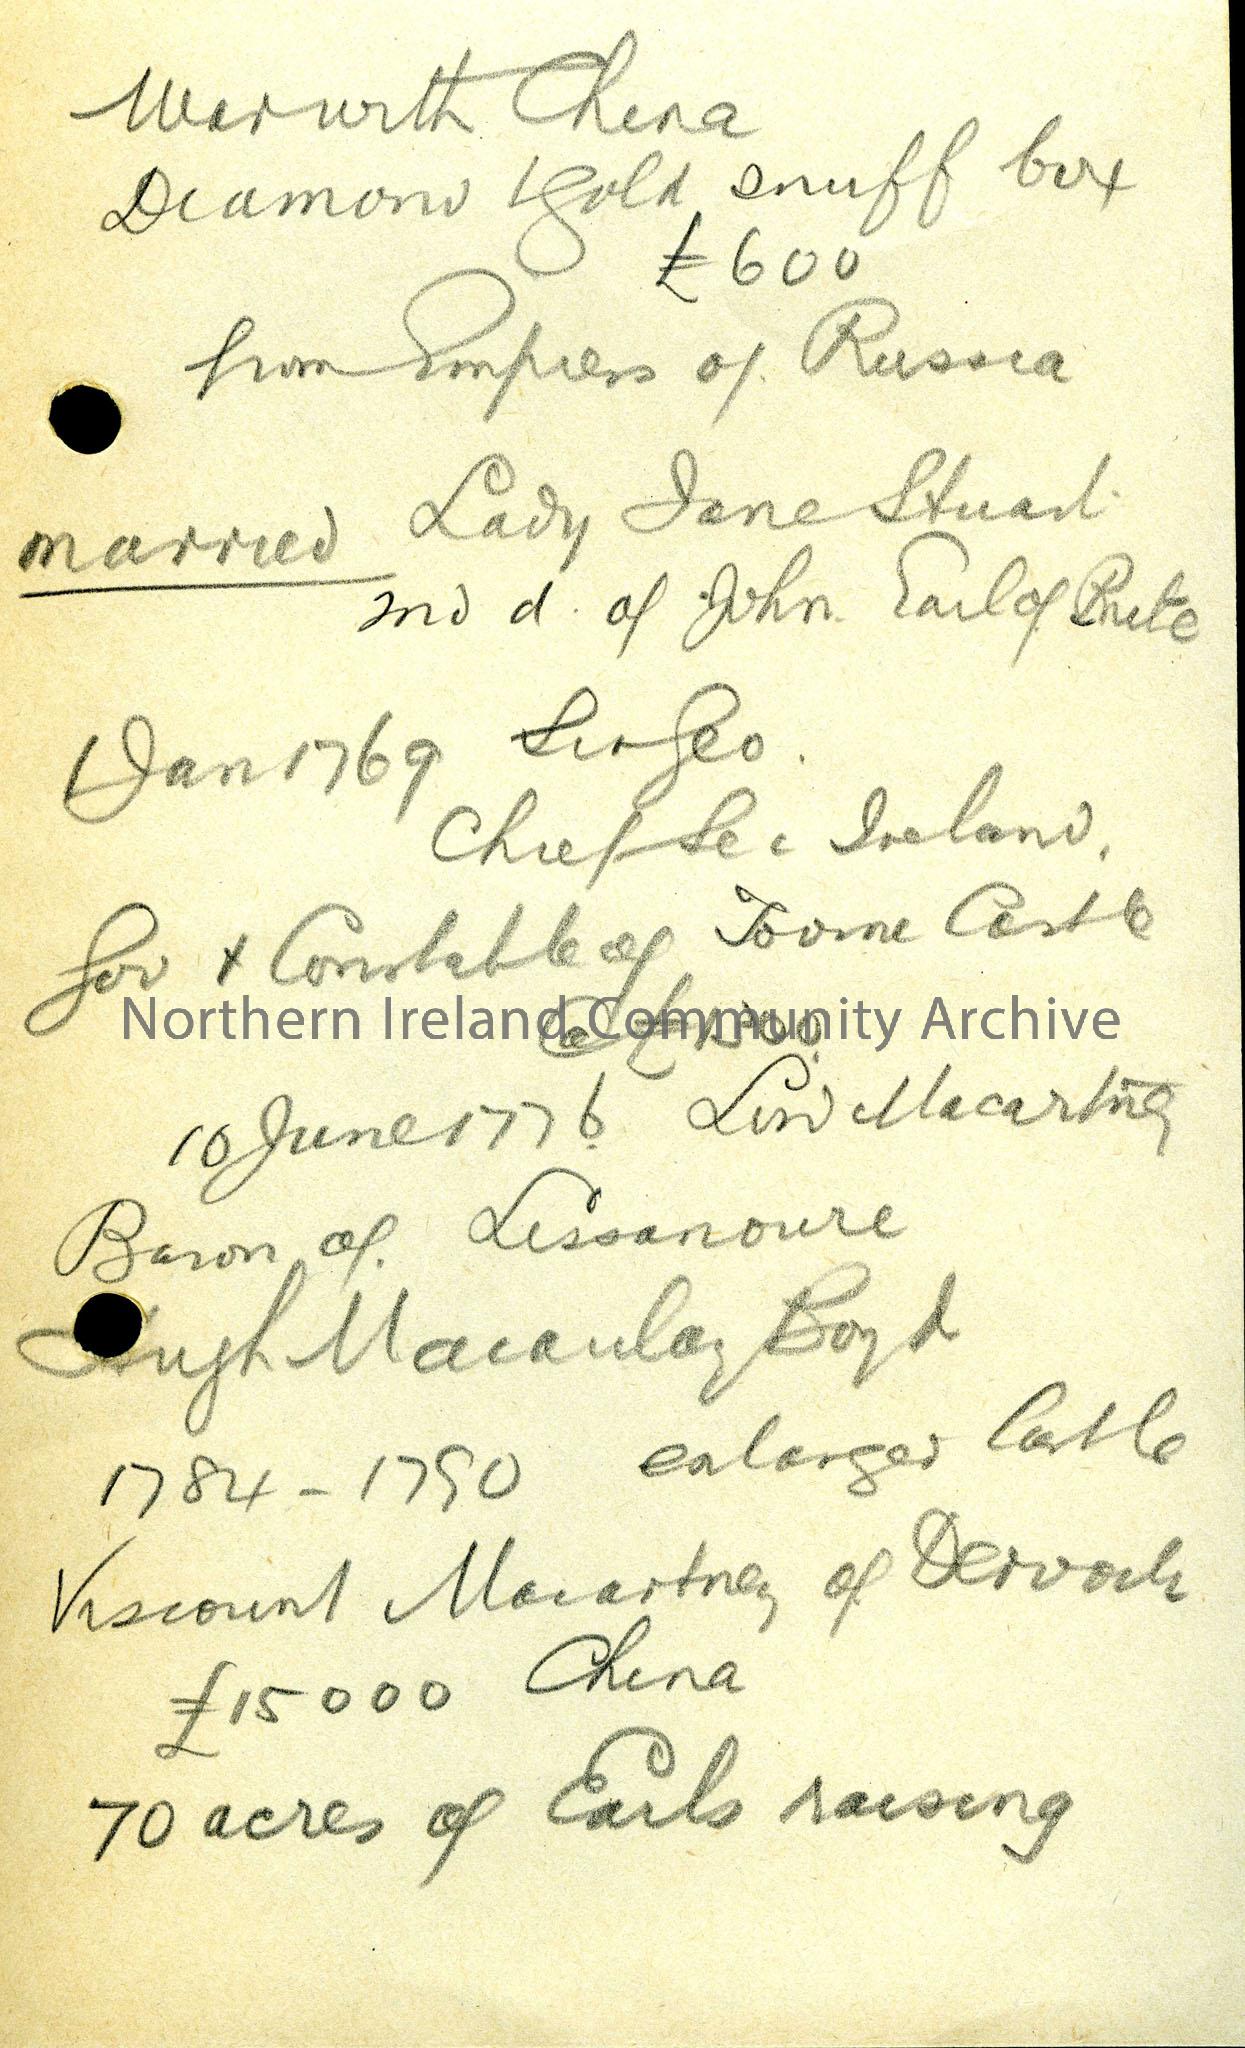 War with China
Diamond & gold snuff box
£600
from Empress of Russia
married Lady Jane Stuart
2nd d. of John Earl of Bute
1 Jan 1769 Sir Geo.
Chief Sec Ireland.
Gov + Constable of Toome Castle
@ £1500
Northern Ireland Community Archive
10 June 1776 Lord Macartney
Baron of Lissanoure
Hugh Macaulay Boyd
1784 - 1790 enlarged Castle
Viscount Macartney of Dervock
£15000 China
70 acres of Earls raising